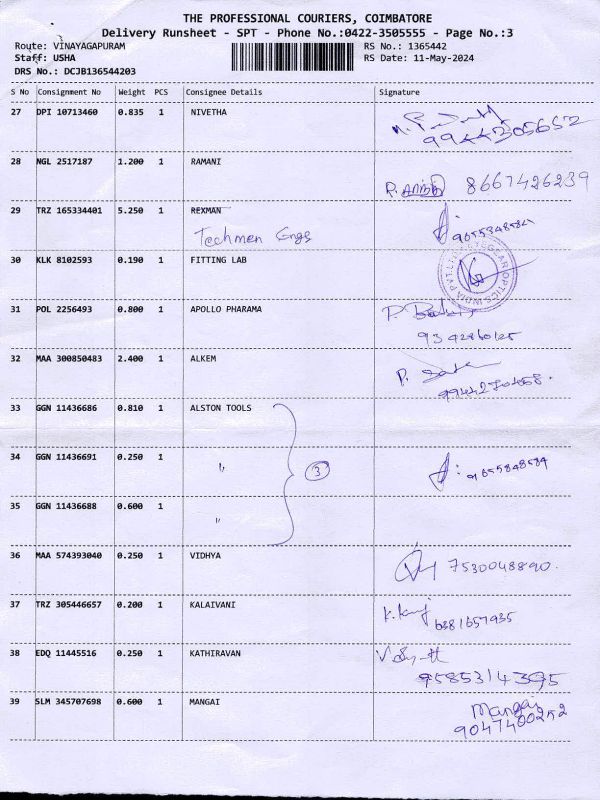 THE PROFESSIONAL COURIERS, COIMBATORE
Delivery Runsheet - SPT - Phone No.:0422-3505555 - Page No.:3
Route: VINAYAGAPURAM RS No.: 1365442
Staff: USHA RS Date: 11-May-2024
DRS No.: DCJB136544203
S No Consignment No Weight PCS Consignee Details Signature
27 DPI 10713460 0.835 1 NIVETHA
9944305652
28 NGL 2517187 1.200 1 RAMANI
8667426239
29 TRZ 165334401 5.250 1 REXMAN
Techmen Engs
30 KLK 8102593 0.190 1 FITTING LAB
31 POL 2256493 0.800 1 APOLLO PHARAMA
32 MAA 300850483 2.400 1 ALKEM
33 GGN 11436686 0.810 1 ALSTON TOOLS
34 GGN 11436691 0.250 1 " 3
35 GGN 11436688 0.600 1 "
36 MAA 574393040 0.250 1 VIDHYA 7530048890.
37 TRZ 305446657 0.200 1 KALAIVANI
6381657935
38 EDQ 11445516 0.250 1 KATHIRAVAN
9585314395
39 SLM 345707698 0.600 1 MANGAI Mangai
9047400252